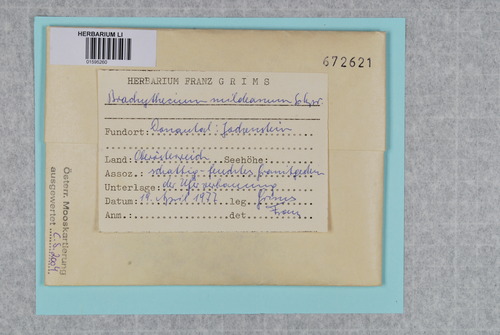 HERBARIUM LI
01595260
672621
HERBARIUM FRANZ GRIMS
Brachythecium mildeanum Schpr.
Fundort: Donautal: Jochenstein
Land: Oberösterreich Seehöhe:
Assoz. schattig-feuchter
Unterlage: der Uferverbauung
Datum: 19. April 1977 leg. Grims
Anm.: det. Franz
Österr. Mooskartierung
ausgewertet